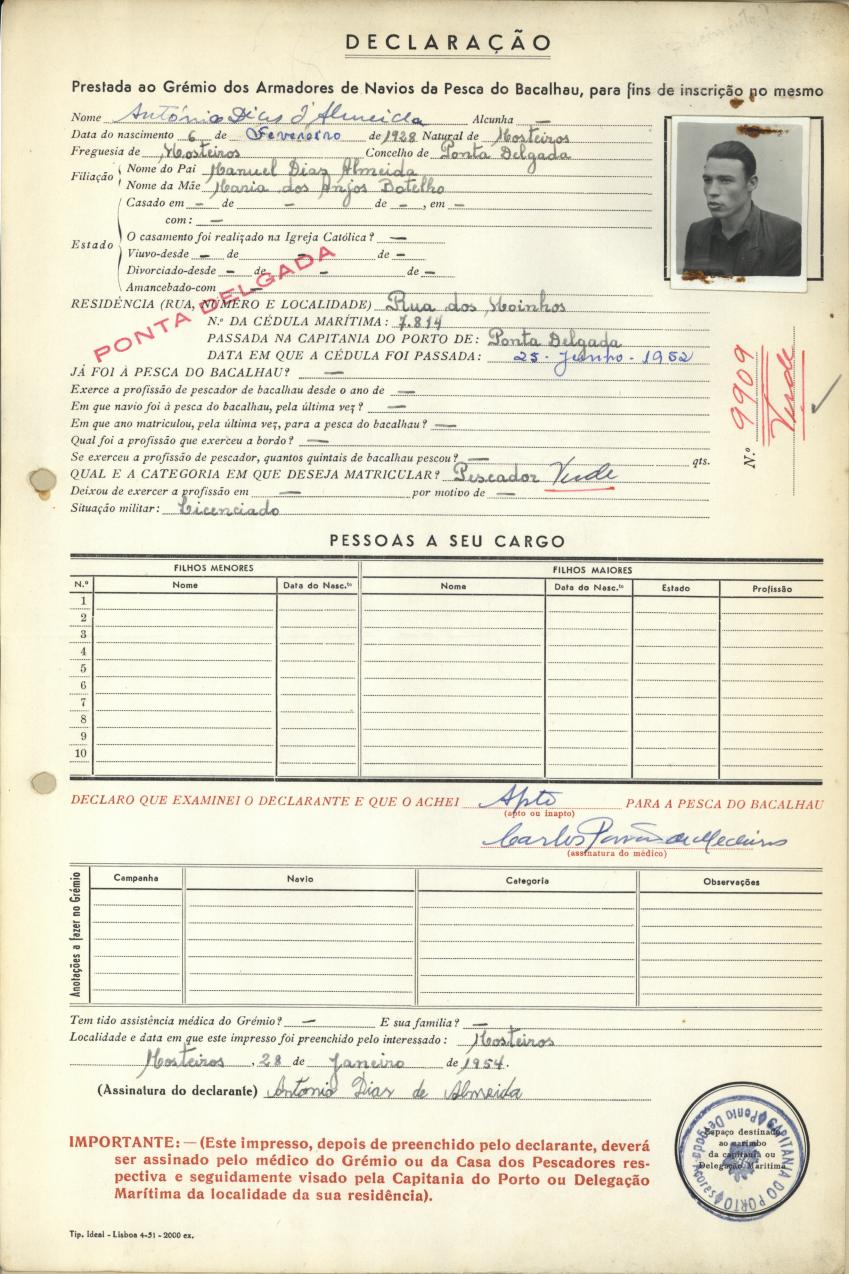 DECLARAÇÃO
Prestada ao Grémio dos Armadores de Navios da Pesca do Bacalhau, para fins de inscrição no mesmo
Nome António Dias d'Almeida Alcunha —
Data do nascimento 6 de Fevereiro de 1928 Natural de Mosteiros
Freguesia de Mosteiros Concelho de Ponta Delgada
Filiação
Nome do Pai Manuel Dias Almeida
Nome da Mãe Maria dos Anjos Botelho
Estado
Casado em — de — de —, em —
com: —
O casamento foi realizado na Igreja Católica? —
Viuvo-desde — de — de —
Divorciado-desde — de — de —
Amancebado-com —
PONTA DELGADA
RESIDÊNCIA (RUA, NÚMERO E LOCALIDADE) Rua dos Moinhos
N.º DA CÉDULA MARÍTIMA: 7.814
PASSADA NA CAPITANIA DO PORTO DE: Ponta Delgada
DATA EM QUE A CÉDULA FOI PASSADA: 25 - Junho - 1952
JÁ FOI À PESCA DO BACALHAU? —
Exerce a profissão de pescador de bacalhau desde o ano de —
Em que navio foi à pesca do bacalhau, pela última vez? —
Em que ano matriculou, pela última vez, para a pesca do bacalhau? —
Qual foi a profissão que exerceu a bordo? —
Se exerceu a profissão de pescador, quantos quintais de bacalhau pescou? — qts.
QUAL E A CATEGORIA EM QUE DESEJA MATRICULAR? Pescador Verde
Deixou de exercer a profissão em — por motivo de —
Situação militar: Licenciado
N.º 9909
Verde
PESSOAS A SEU CARGO
FILHOS MENORES FILHOS MAIORES
N.º Nome Data do Nasc.to Nome Data do Nasc.to Estado Profissão
1
2
3
4
5
6
7
8
9
10
DECLARO QUE EXAMINEI O DECLARANTE E QUE O ACHEI Apto PARA A PESCA DO BACALHAU
(apto ou inapto)
Carlos de Medeiros
(assinatura do médico)
Anotações a fazer no Grémio
Campanha Navio Categoria Observações
Tem tido assistência médica do Grémio? — E sua família? —
Localidade e data em que este impresso foi preenchido pelo interessado: Mosteiros
Mosteiros, 28 de Janeiro de 1954.
(Assinatura do declarante) Antonio Dias de Almeida
Espaço destinado
ao carimbo
da capitania ou
Delegação Marítima
CAPITANIA DO PORTO
Ponta Delgada Açores
IMPORTANTE: — (Este impresso, depois de preenchido pelo declarante, deverá
ser assinado pelo médico do Grémio ou da Casa dos Pescadores res-
pectiva e seguidamente visado pela Capitania do Porto ou Delegação
Marítima da localidade da sua residência).
Tip. Ideal - Lisboa 4-51 - 2000 ex.